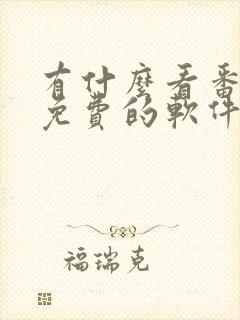 有什麼看番
免費的軟件
福瑞克